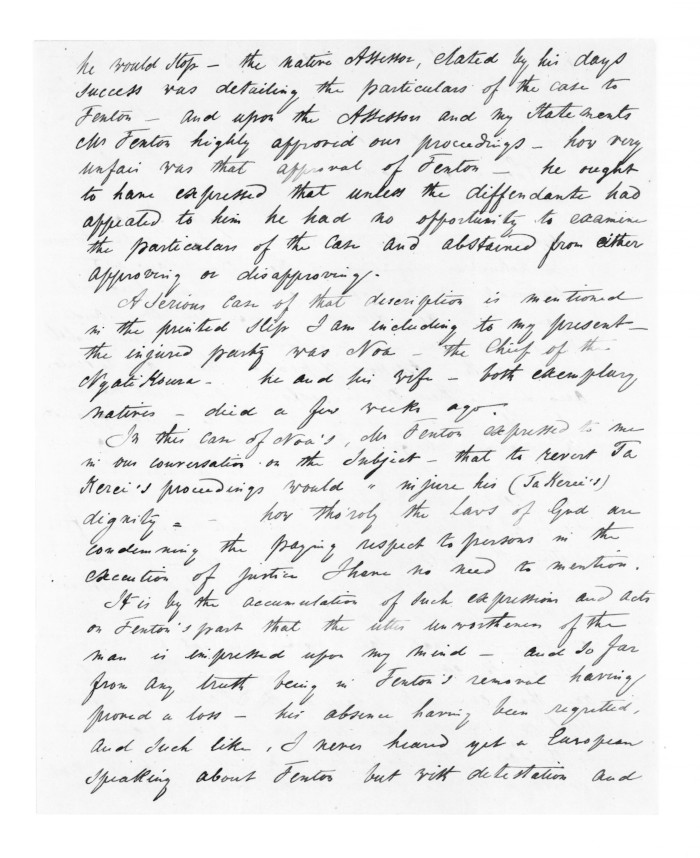 he would stop – the native Assessor, elated by his days
success was detailing the particulars of the case to
Fenton – and upon the Assessors and my statements
Mr Fenton highly approved our proceedings – how very
unfair was that approval of Fenton – he ought
to have expressed that unless the diffendante had
appealed to him he had no opportunity to examine
the particulars of the case and abstained from either
approving or disapproving.
A serious case of that description is mentioned
in the printed slip I am including to my present –
the injured party was Noa – the Chief of the
Ngati Koura – he and his wife – both exemplary
natives – died a few weeks ago.
In this case of Noa's, Mr Fenton expressed to me
in our conversation on the subject – that to revert Ta
Kerei's proceedings would " injure his (Ta Kerei's)
dignity = – how tho'roly the Laws of God are
condemning the paying respect to persons in the
execution of justice I have no need to mention.
It is by the accumulation of such expressions and acts
on Fenton's part that the utter unwortheness of the
man is impressed upon my mind – and so far
from any truth being in Fenton's removal having
proved a loss – his absence having been regretted,
and such like, I never heared yet a European
speaking about Fenton but with detestation and